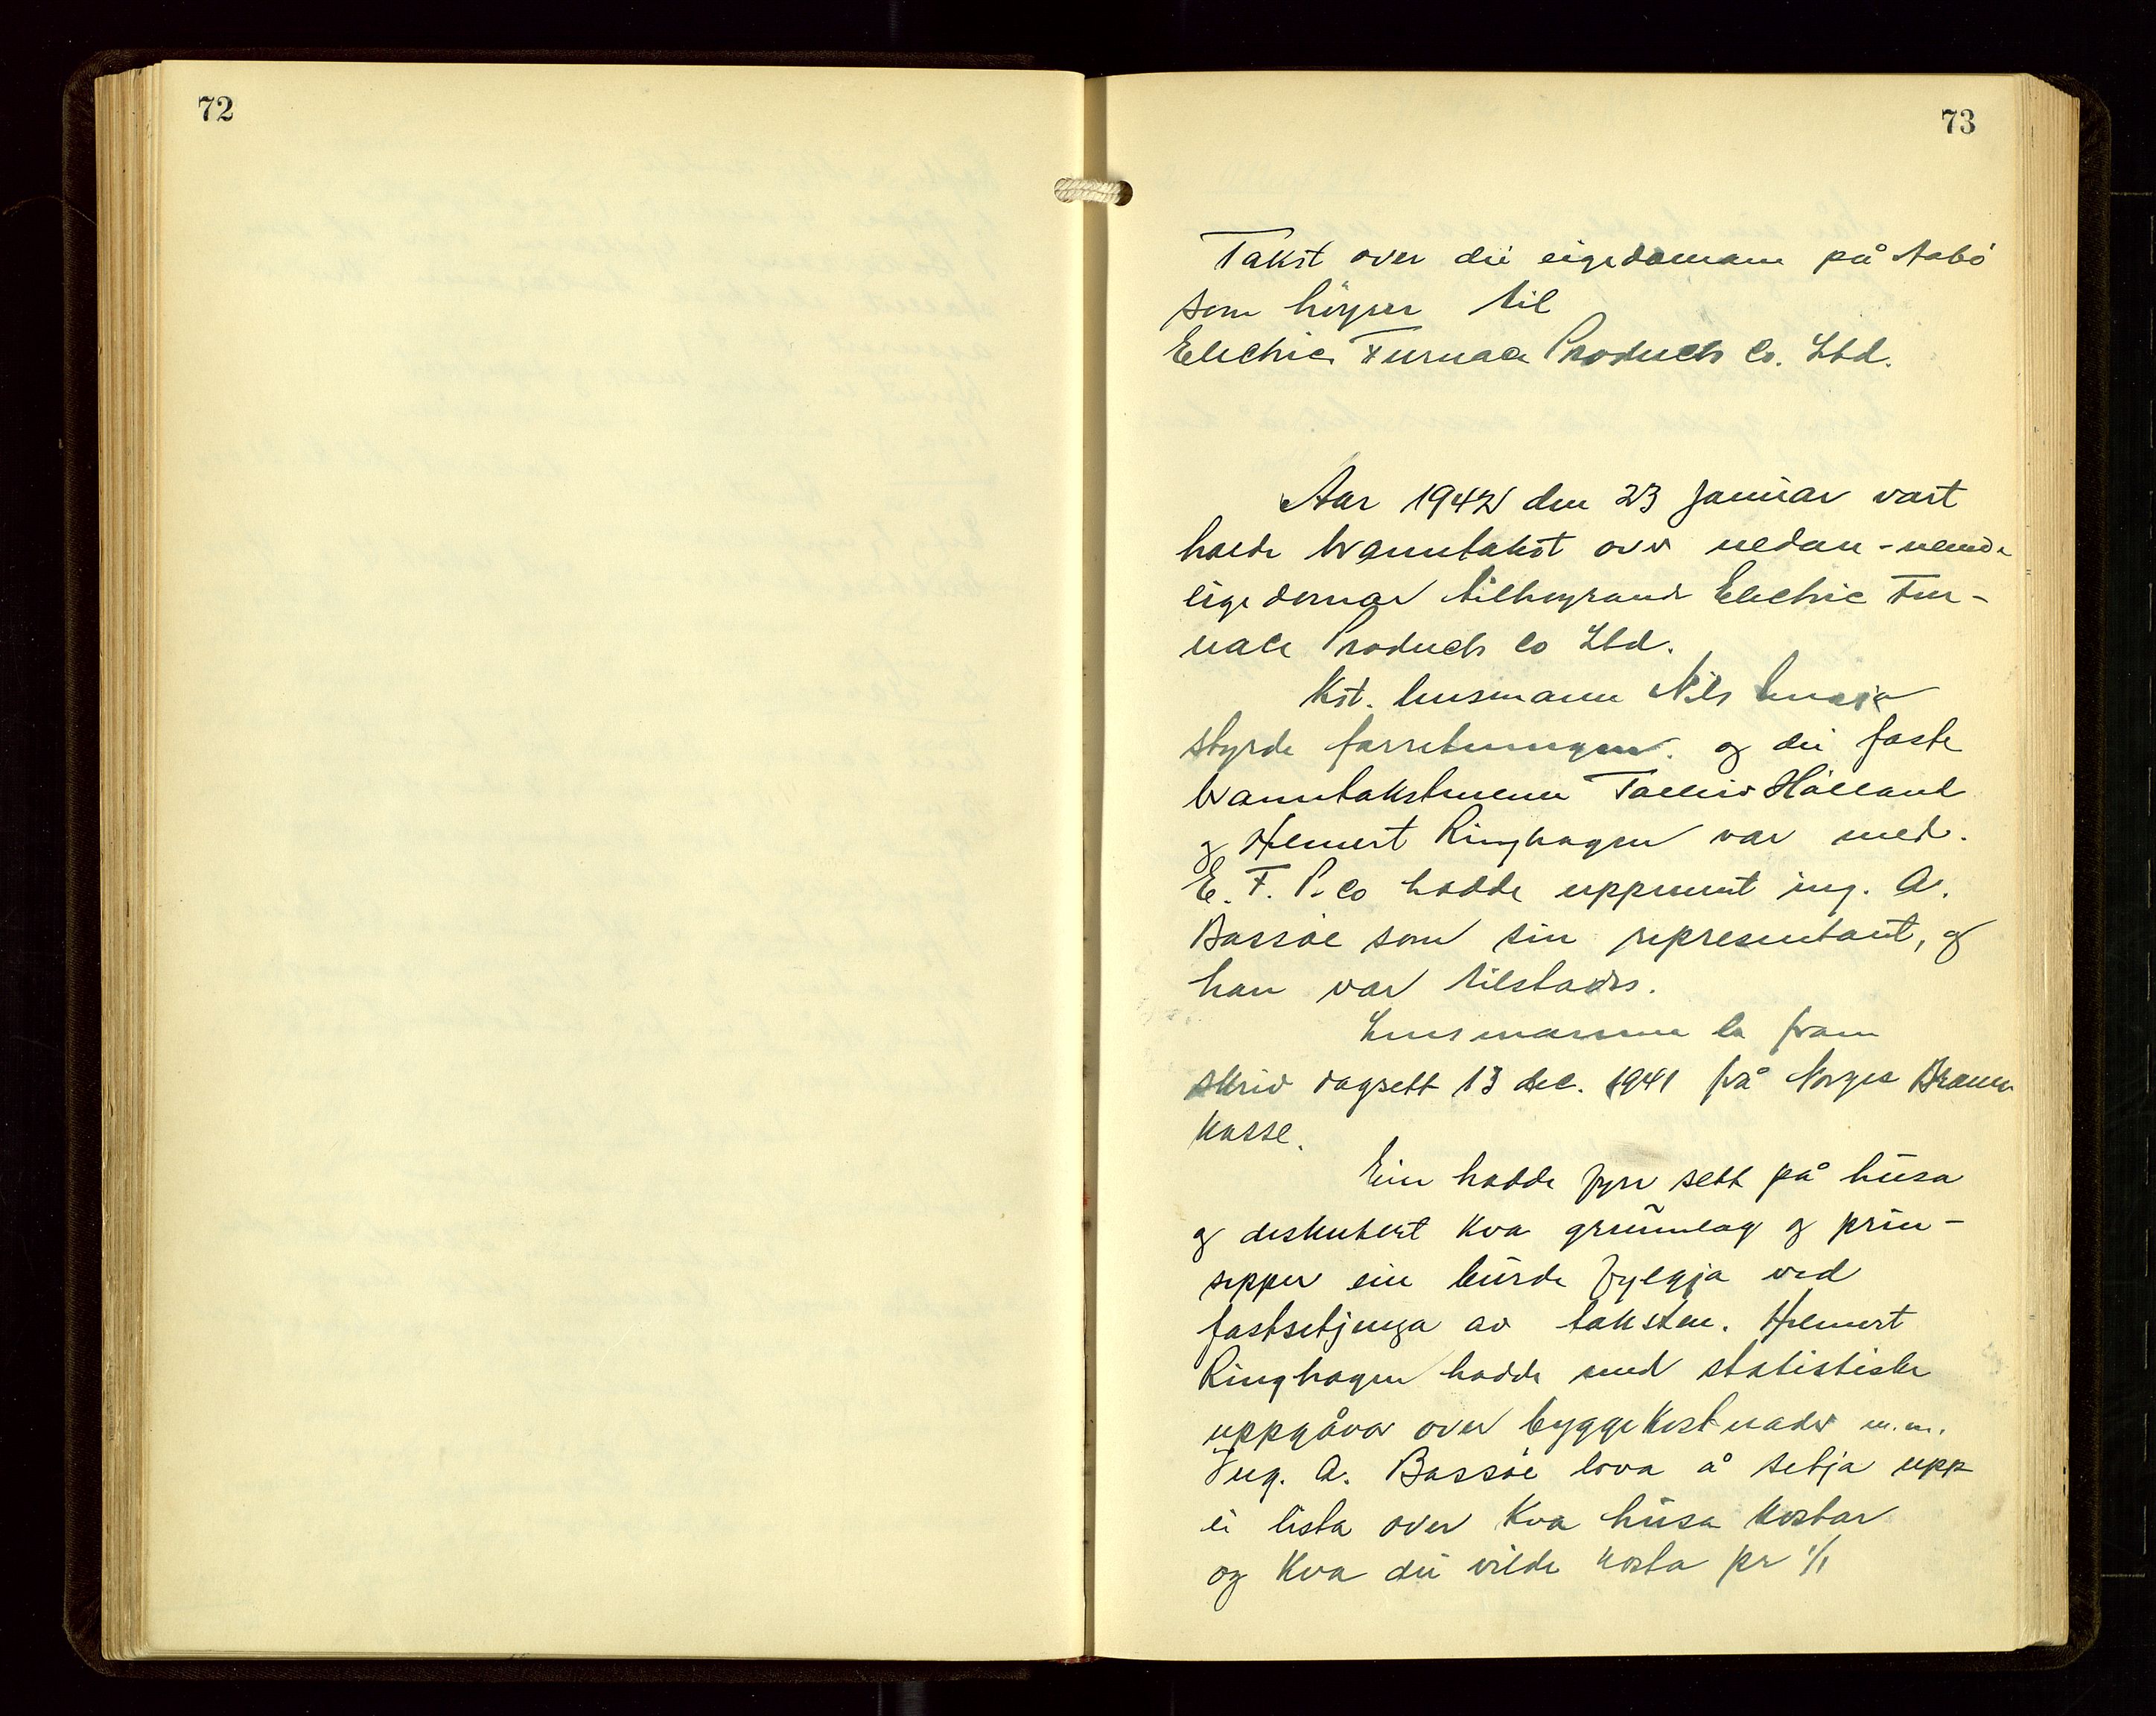 72
73
Takst over dei eigedomane på Aabö
som høyrer til
Electric Furnace Products Co. Ltd.
Aar 1942 den 23 Januar vart
halde branntakst over nedan-nemde
eigedomar tilhøyrande Electric Fur-
nace Products Co Ltd.
Kst. lensmann Nils
styrde forretningen. og dei faste
branntakstmenn Tolleiv Hålland
og Helmert Ringhagen var med.
E. F. P. Co hadde uppnemt ing. A.
Bassøe som sin representant, og
han var tilstades.
Lensmannen la fram
skriv dagsett 13 des. 1941 frå Norges Brann-
kasse.
Ein hadde fyrr sett på husa
og diskutert kva grunnlag og prin-
sipper ein burde fylgja ved
fastsetjinga av taksten. Helmert
Ringhagen hadde med statistiske
uppgåvor over byggekostnader m.m.
Ing. A. Bassøe lova å setja upp
ei lista over kva husa kostar
og kva dei vilde kosta pr 1/1